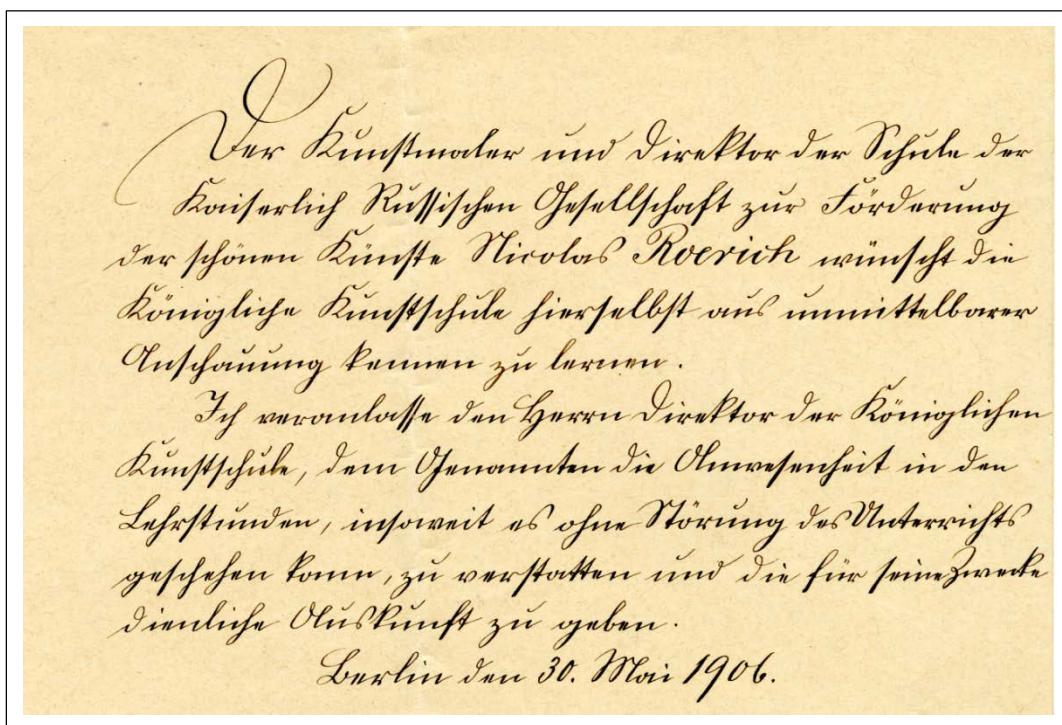 Der Kunstmaler und Direktor der Schule der
Kaiserlich Russischen Gesellschaft zur Förderung
der schönen Künste Nicolas Roerich wünscht die
Königliche Kunstschule hierselbst aus unmittelbarer
Anschauung kennen zu lernen.
Ich veranlasse den Herrn Direktor der Königlichen
Kunstschule, dem Genannten die Anwesenheit in den
Lehrstunden, insoweit es ohne Störung des Unterrichts
geschehen kann, zu verstatten und die für seine Zwecke
dienliche Auskunft zu geben.
Berlin den 30. Mai 1906.